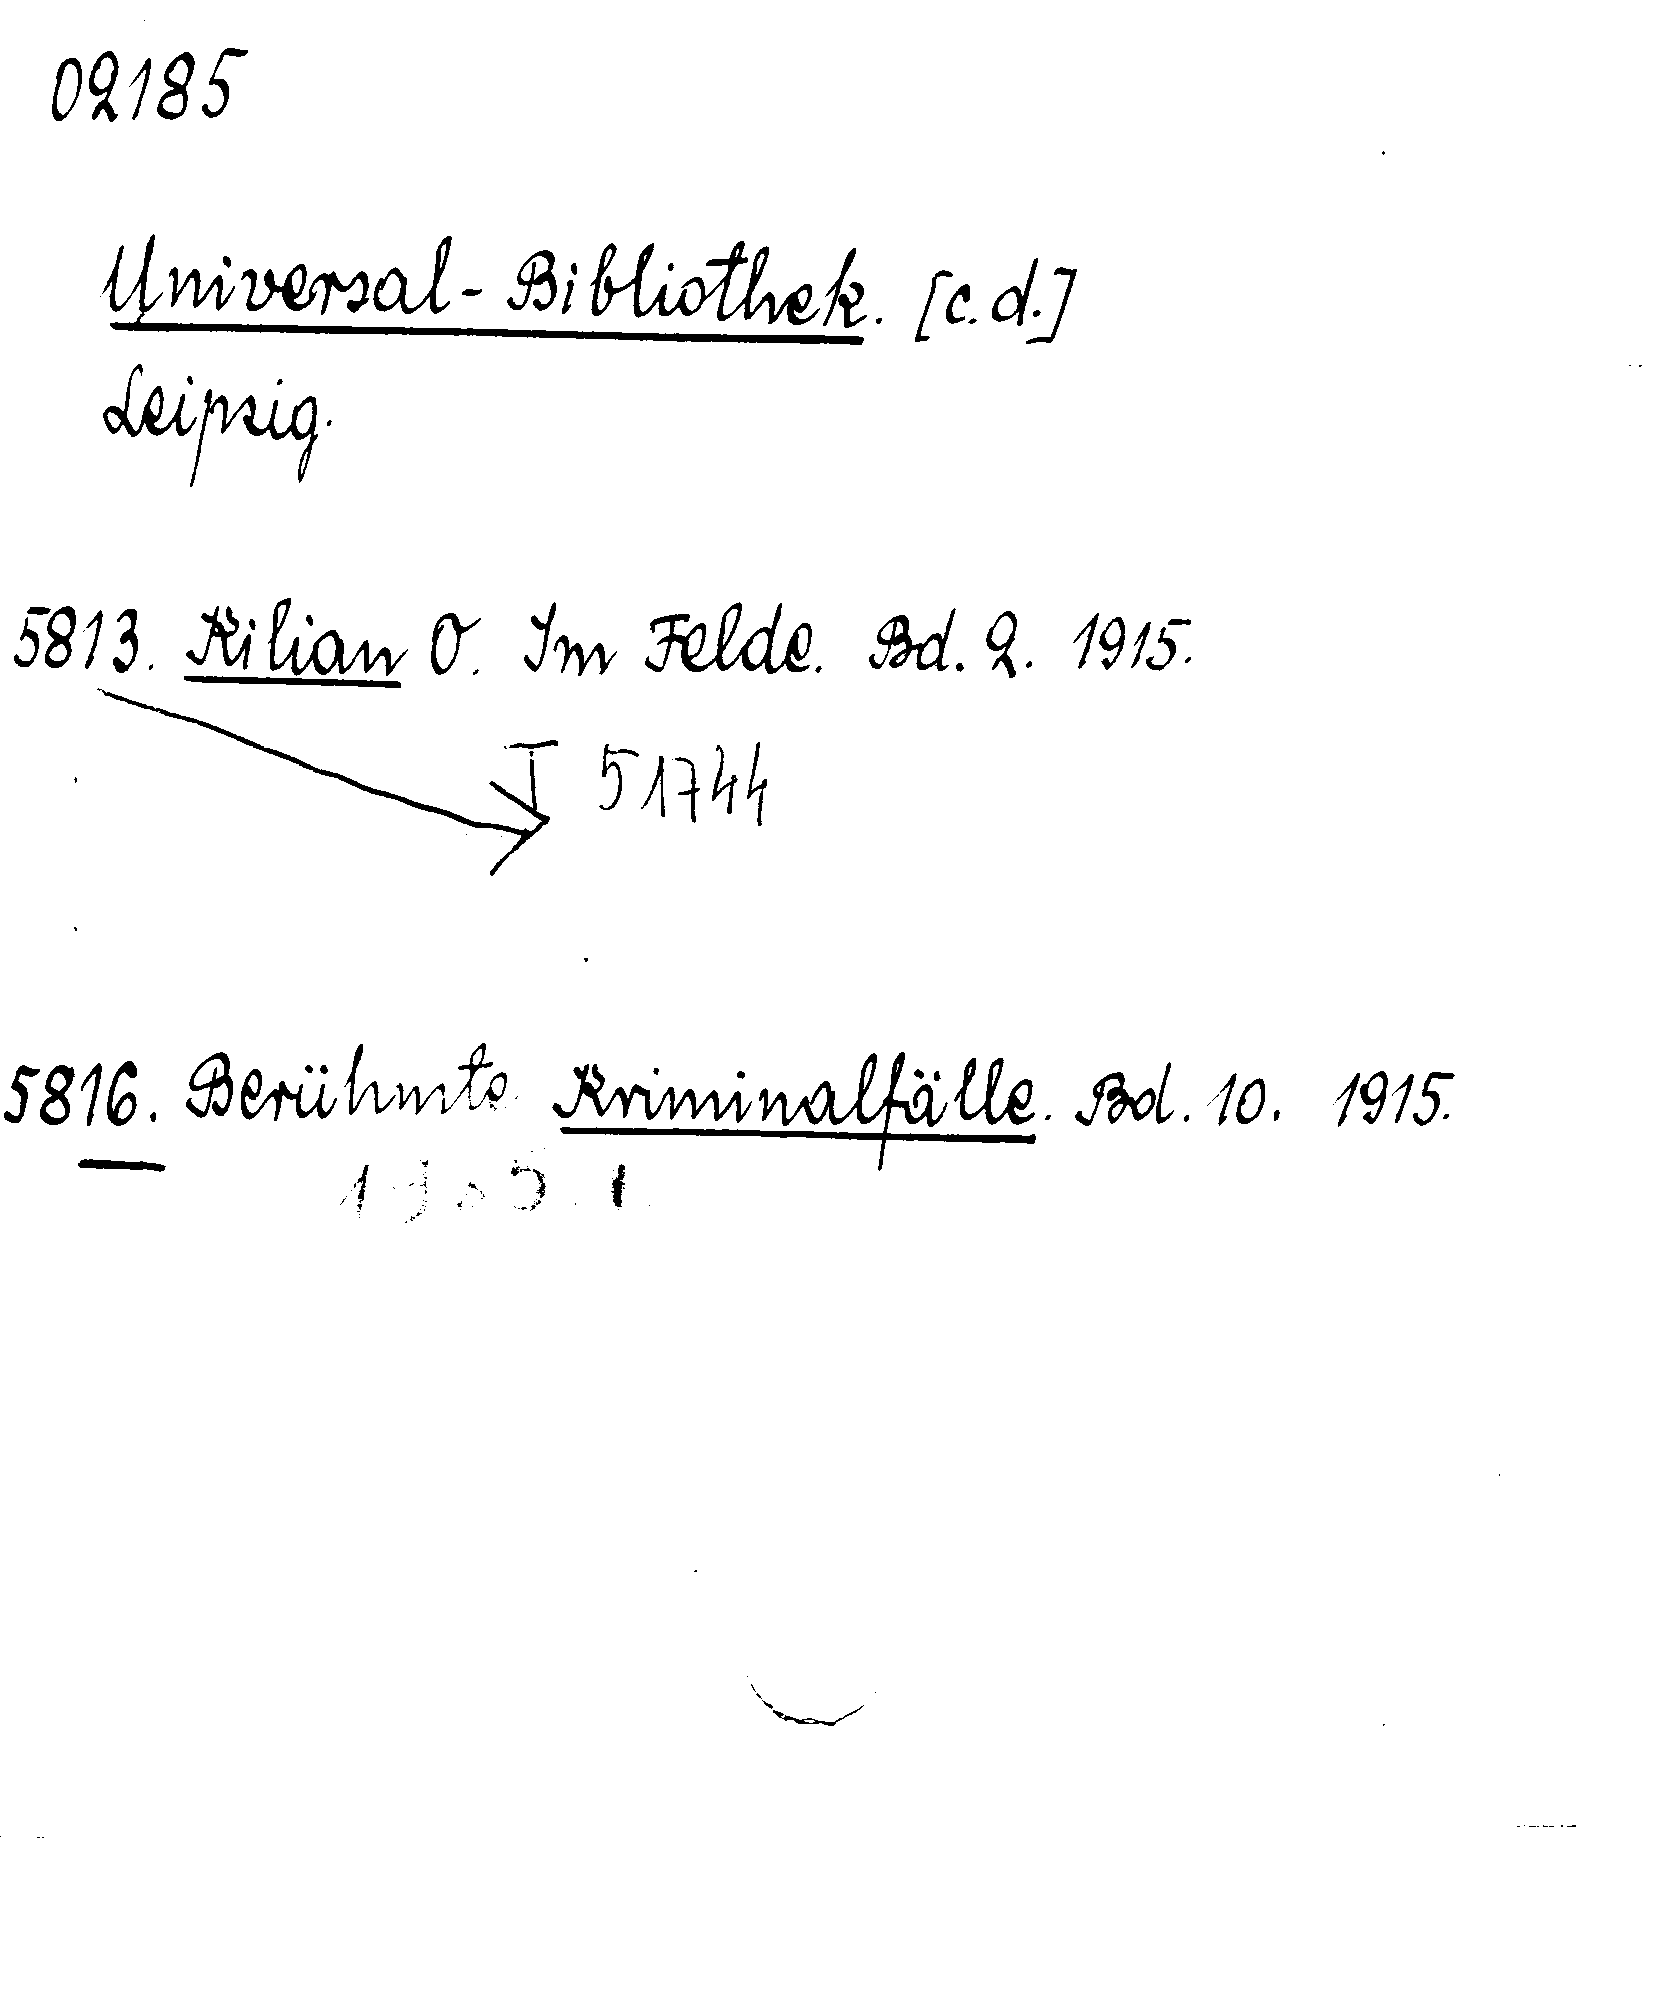 02185
Universal-Bibliothek. [c.d.]
Leipzig.
5813. Kilian O. Im Felde. Bd. 2. 1915.
T 51744
5816. Berühmte Kriminalfälle. Bd. 10. 1915.